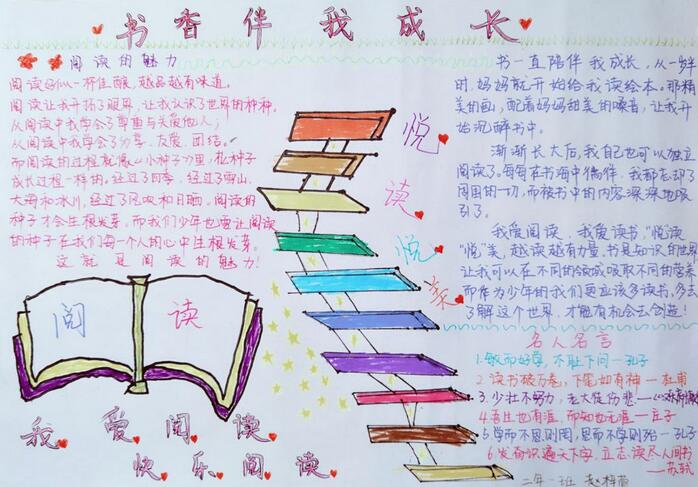 书香伴我成长
阅读的魅力
阅读好似一杯佳酿,越品越有味道。
阅读让我开拓了眼界,让我认识了世界的种种。
从阅读中我学会了尊重与关爱他人;
从阅读中我学会了分享、友爱、团结。
而阅读的过程就像《小种子》里,和种子
成长过程一样的。经过了四季,经过了雪山、
大海和冰川,经过了风吹和日晒。阅读的
种子才会生根发芽。而我们少年也要让阅读
的种子在我们每一个人的心中生根发芽。
这就是阅读的魅力!
悦
读
悦
美
书一直陪伴我成长,从一岁半
时,妈妈就开始给我读绘本。那精
美的画,配着妈妈甜美的嗓音,让我开
始沉醉书中。
渐渐长大后,我自己也可以独立
阅读了。每每在书海中徜徉,我都忘却了
周围的一切,而被书中的内容深深地吸
引了。
我爱阅读,我爱读书,"悦读
"悦"美,越读越有力量。书是知识的世界
让我可以在不同的领域吸取不同的营养
而作为少年的我们更应该多读书,多去
了解这个世界,才能有机会去创造!
阅 读
我爱阅读
快乐阅读
名人名言
1.敏而好学,不耻下问—孔子
2.读书破万卷,下笔如有神—杜甫
3.少壮不努力,老大徒伤悲—《汉乐府
4.吾生也有涯,而知也无涯—庄子
5.学而不思则罔,思而不学则殆—孔子
6.发奋识遍天下字,立志读尽人间书
—苏轼
二年一班 赵梓